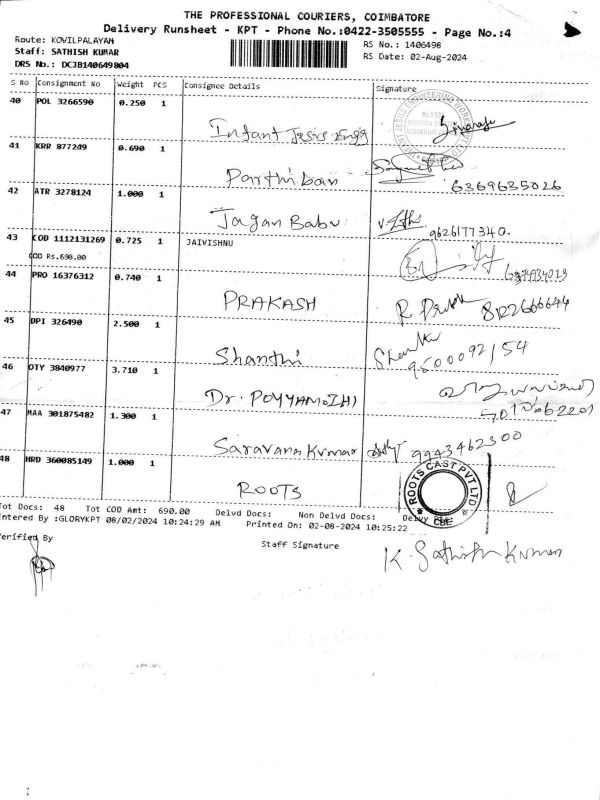 THE PROFESSIONAL COURIERS, COIMBATORE
Delivery Runsheet - KPT - Phone No.:0422-3505555 - Page No.:4
Route: KOVILPALAYAM
RS No.: 1406498
Staff: SATHISH KUMAR
RS Date: 02-Aug-2024
DRS No.: DCJB140649804
S No Consignment No Weight PCS Consignee Details Signature
40 POL 3266590 0.250 1
Infant Jesus Engg
41 KRR 877249 0.690 1
Parthiban 6369635026
42 ATR 3278124 1.000 1
Jagan Babu 9626177340.
43 COD 1112131269 0.725 1 JAIVISHNU
COD Rs.690.00
44 PRO 16376312 0.740 1
PRAKASH R
45 DPI 326490 2.500 1
Shanthi 9500092154
46 OTY 3840977 3.710 1
Dr. POYYAMOZHI
47 MAA 301875482 1.300 1
Saravana Kumar 9943462300
48 HRD 360085149 1.000 1
ROOTS
ROOTS CAST PVT LTD
CBE
Tot Docs: 48 Tot COD Amt: 690.00 Delvd Docs: Non Delvd Docs:
Entered By :GLORYKPT 08/02/2024 10:24:29 AM Printed On: 02-08-2024 10:25:22
Verified By Staff Signature
K. Sathish Kumar